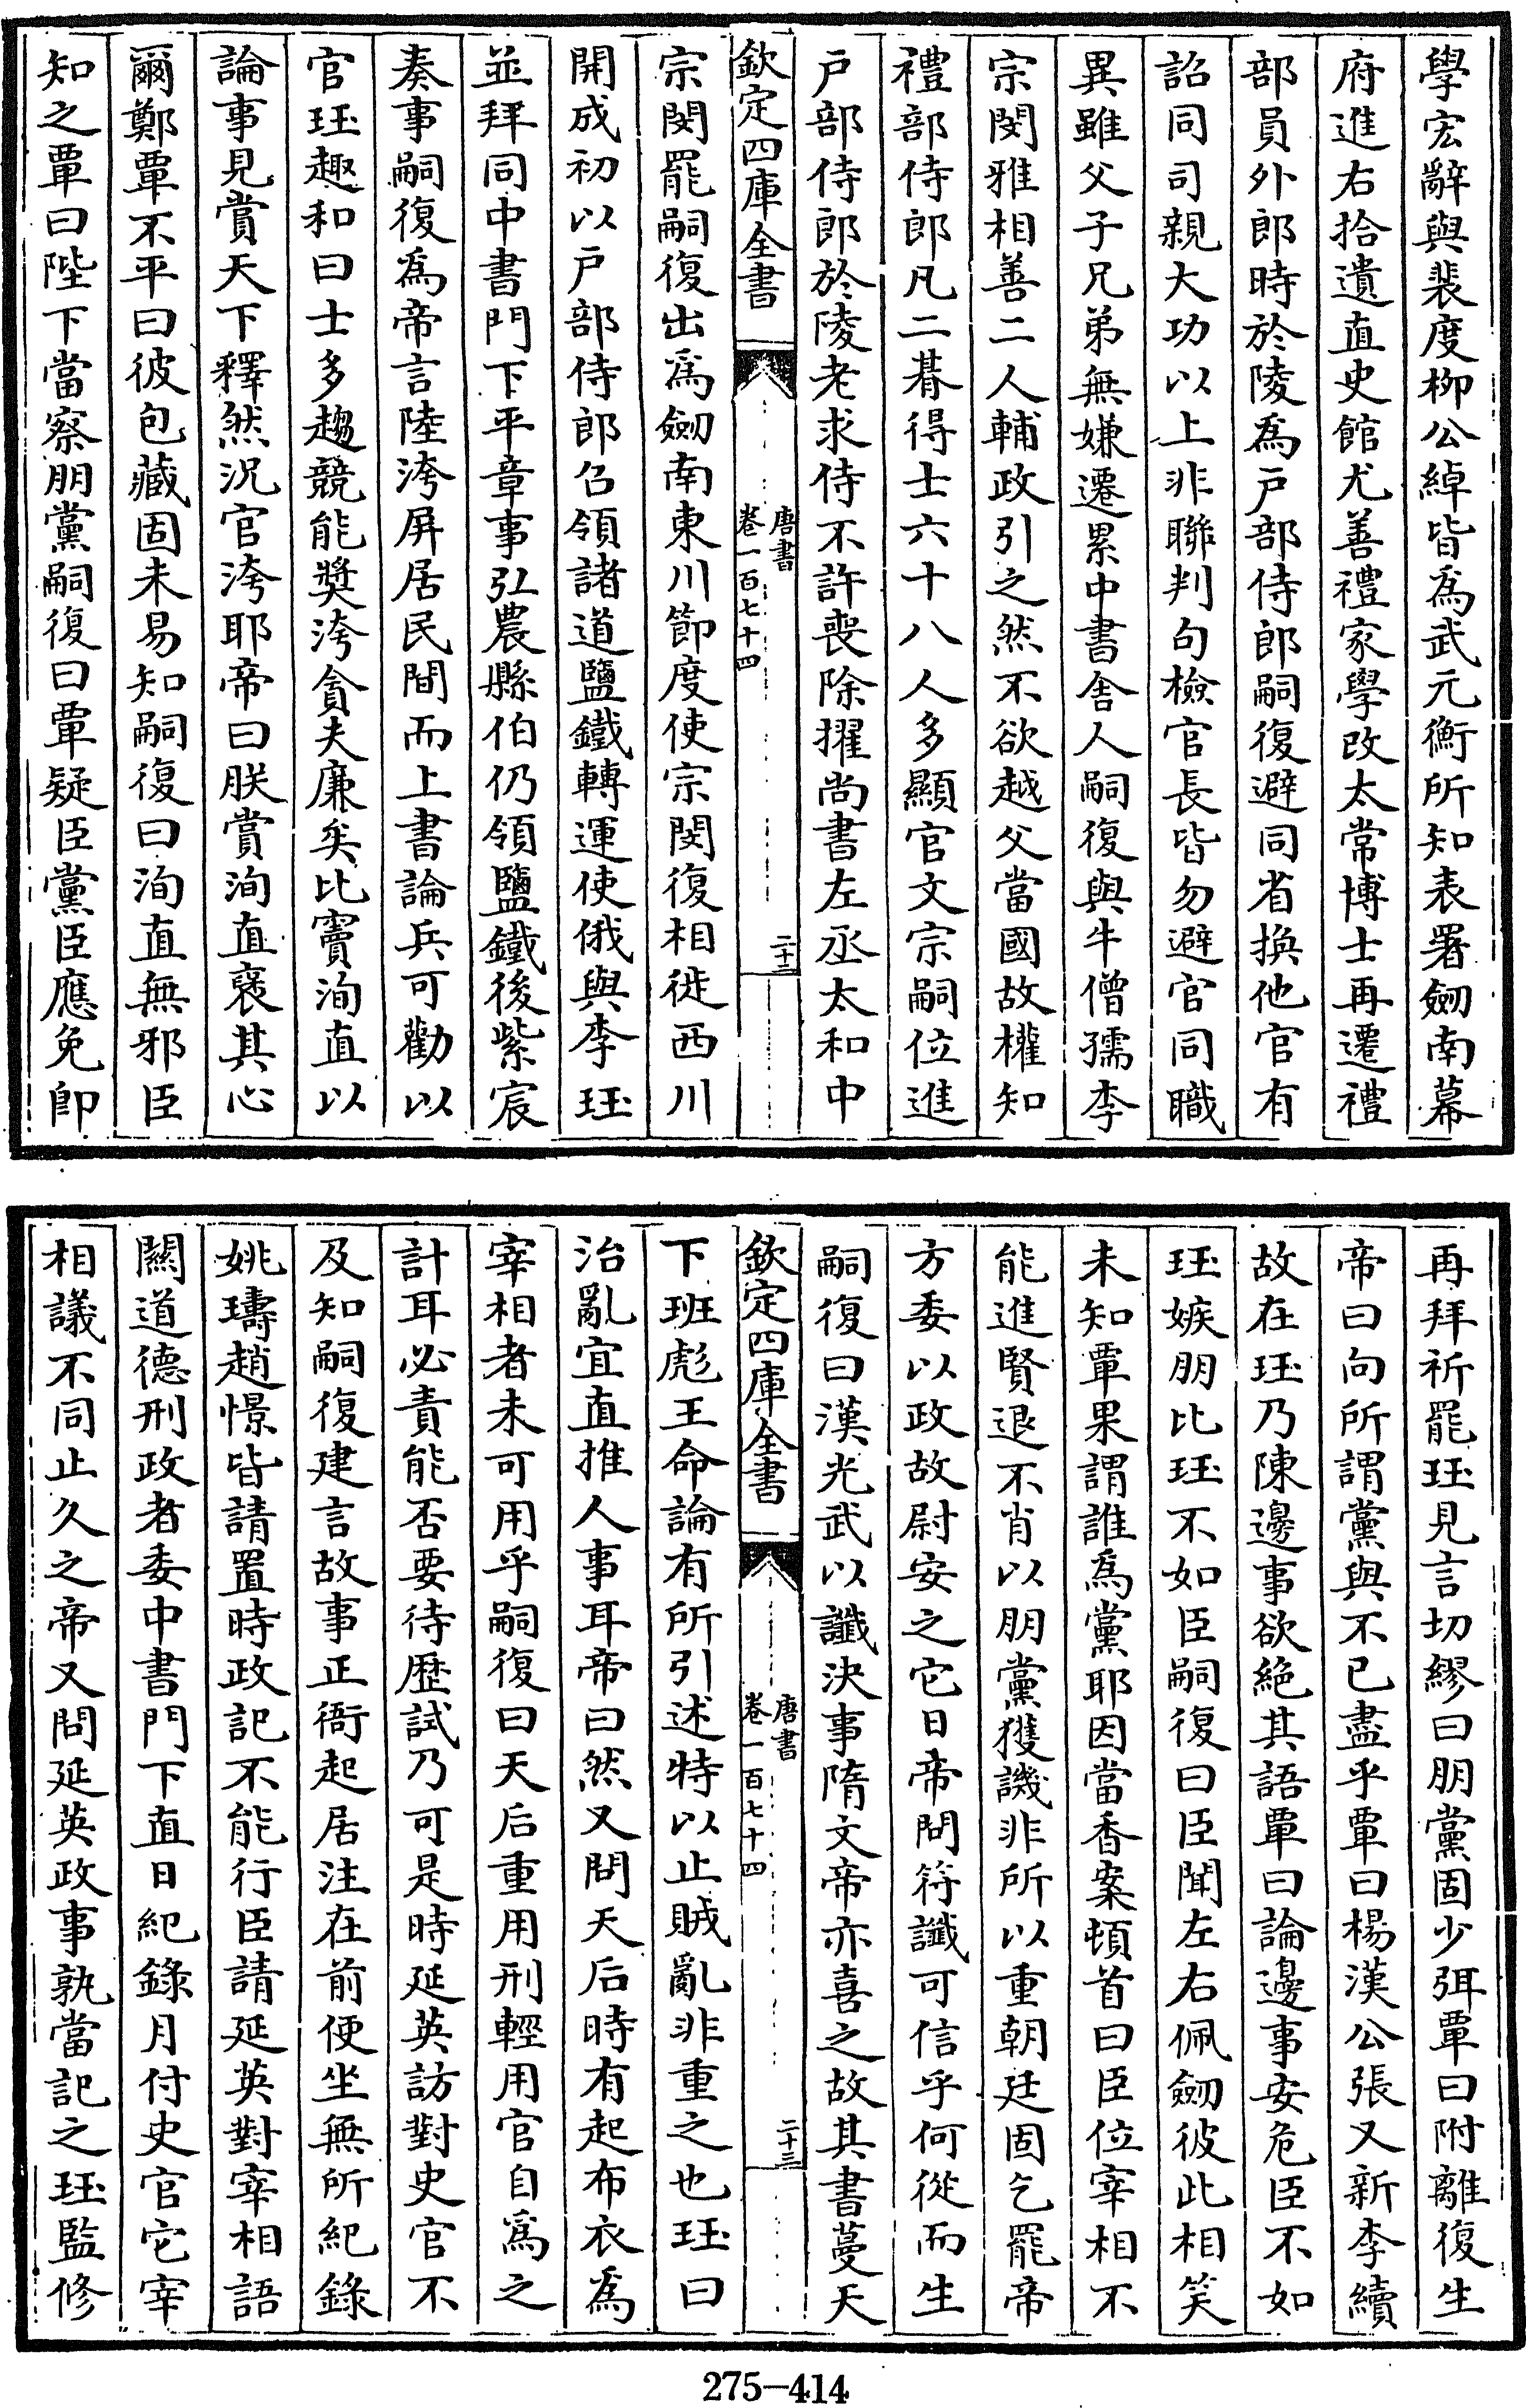 學宏辭與裴度柳公綽皆爲武元衡所知表署劒南幕
府進右拾遺直史館尤善禮家學改太常博士再遷禮
部員外郎時於陵爲戸部侍郎嗣復避同省換他官有
詔同司親大功以上非聯判句檢官長皆勿避官同職
異雖父子兄弟無嫌遷累中書舍人嗣復與牛僧孺李
宗閔雅相善二人輔政引之然不欲越父當國故權知
禮部侍郎凡二朞得士六十八人多顯官文宗嗣位進
戸部侍郎於陵老求侍不許喪除擢尚書左丞太和中
欽定四庫全書
唐書
卷一百七十四
二十二
宗閔罷嗣復出爲劒南東川節度使宗閔復相徙西川
開成初以戸部侍郎召領諸道鹽鐵轉運使俄與李珏
並拜同中書門下平章事弘農縣伯仍領鹽鐵後紫宸
奏事嗣復爲帝言陸洿屏居民間而上書論兵可勸以
官珏趣和曰士多趨競能獎洿貪夫廉矣比竇洵直以
論事見賞天下釋然況官洿耶帝曰朕賞洵直褒其心
爾鄭覃不平曰彼包藏固未易知嗣復曰洵直無邪臣
知之覃曰陛下當察朋黨嗣復曰覃疑臣黨臣應免即
再拜祈罷珏見言切繆曰朋黨固少弭覃曰附離復生
帝曰向所謂黨與不已盡乎覃曰楊漢公張又新李續
故在珏乃陳邊事欲絶其語覃曰論邊事安危臣不如
珏嫉朋比珏不如臣嗣復曰臣聞左右佩劒彼此相笑
未知覃果謂誰爲黨耶因當香案頓首曰臣位宰相不
能進賢退不肖以朋黨獲譏非所以重朝廷固乞罷帝
方委以政故尉安之它日帝問符讖可信乎何從而生
嗣復曰漢光武以讖決事隋文帝亦喜之故其書蔓天
欽定四庫全書
唐書
卷一百七十四
二十三
下班彪王命論有所引述特以止賊亂非重之也珏曰
治亂宜直推人事耳帝曰然又問天后時有起布衣爲
宰相者未可用乎嗣復曰天后重用刑輕用官自爲之
計耳必責能否要待歴試乃可是時延英訪對史官不
及知嗣復建言故事正衙起居注在前便坐無所紀錄
姚璹趙憬皆請置時政記不能行臣請延英對宰相語
關道德刑政者委中書門下直日紀錄月付史官它宰
相議不同止久之帝又問延英政事孰當記之珏監修
275-414